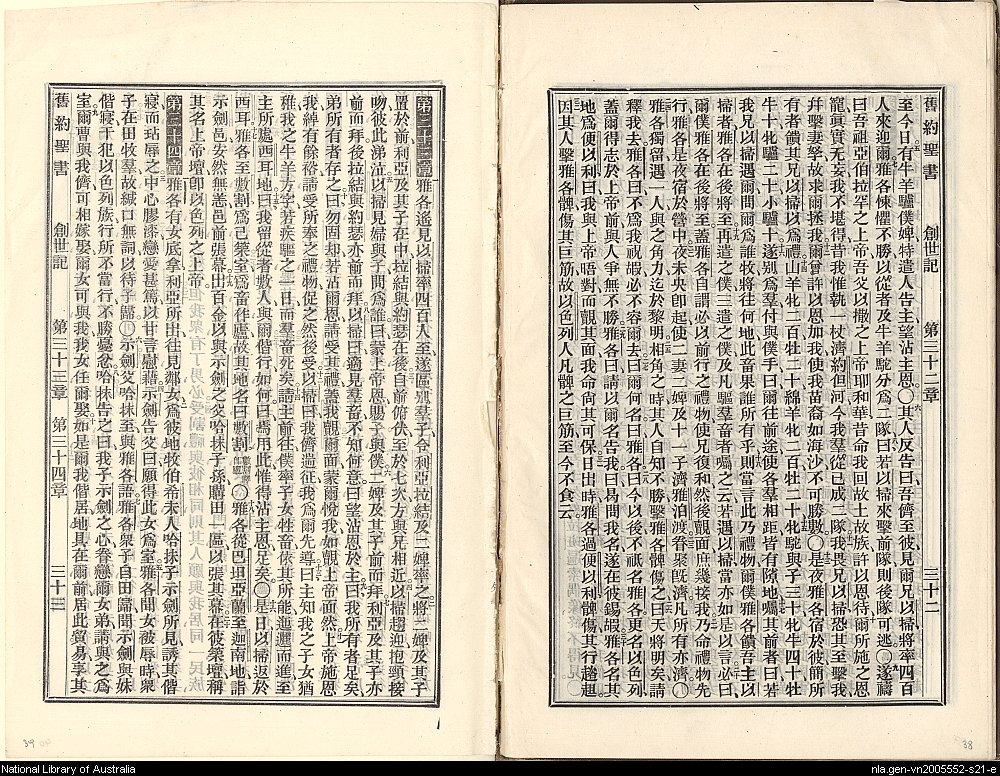 舊約聖書 創世記 第三十二章 三十二
至今日有牛羊驢僕婢特遣人告主望沾主恩〇其人反告曰吾儕至彼見爾兄以掃將率四百
人來迎爾雅各悚懼不勝以從者及牛羊駝分爲二隊曰若以掃來擊前隊則後隊可逃〇遂禱
曰吾祖亞伯拉罕之上帝吾父以撒之上帝耶和華昔命我回故土故族許以恩待爾所施之恩
寵眞實无妄我不堪得昔我惟執一杖濟約但河今我羣從已成二隊我畏兄以掃恐其至擊我
幷擊妻孥故求爾拯我爾曾許以恩加我使我苗裔如海沙不可勝數〇是夜雅各宿於彼簡所
有者饋其兄以掃以爲禮山羊牝二百牡二十綿羊牝二百牡二十牝駝與子三十牝牛四十牡
牛十牝驢二十小驢十遂別爲羣付與僕手曰爾往前途使各羣相距皆有隙地囑其前者曰若
我兄以掃遇爾問爾爲誰牧將往何地此畜果誰所有乎則當言此乃禮物爾僕雅各饋吾主以
掃者雅各在後將至再遣之僕三遣之僕及凡驅羣畜者囑之云若遇以掃當亦如是以言必曰
爾僕雅各在後將至蓋雅各自謂必以前行之禮物使兄復和然後覿面庶幾接我乃命禮物先
行雅各是夜宿於營中夜未央卽起使二妻二婢及十一子濟雅泊渡眷聚旣濟凡所有亦濟〇
雅各獨留遇一人與之角力迄於黎明相角之時其人自知不勝擊雅各髀傷之曰天將明矣請
釋我去雅各曰不爲我祝嘏必不容爾去曰爾何名曰雅各曰今以後不祇名雅各更名以色列
蓋爾得志於上帝前與人爭無不勝雅各曰請以爾名告我曰曷問我名遂在彼錫嘏雅各名其
地爲便以利曰我與上帝晤對而覿其面我命尙其可保日出時雅各過便以利髀傷其行趦趄
因其人擊雅各髀傷其巨筋故以色列人凡髀之巨筋至今不食云
38
第三十三章 雅各遙見以掃率四百人至遂區別羣子令利亞拉結及二婢率之將二婢及其子
置於前利亞及其子在中拉結與約瑟在後自前俯伏至於七次方與兄相近以掃趨迎抱頸接
吻彼此涕泣以掃見婦與子問爲誰曰蒙上帝恩賜子與僕二婢及其子前而拜利亞及其子亦
前而拜後拉結與約瑟亦前而拜以掃曰適見羣畜不知何意曰望沾恩於主曰我所有者足矣
弟所有者存之曰勿固却若荷恩請受其禮蓋我覿爾面蒙爾悅我如覿上帝面然上帝施恩
我綽有餘裕請受所奉之禮物促之然後受以掃曰我儕遄征我爲爾先導曰主知我之子女猶
稚我之牛羊方字若疾驅之一日而羣畜死矣請主前往僕率子女牲畜依其所能迤邐而進至
主所處西耳地曰我留從者數人與爾偕行如何曰焉用此惟得沾主恩足矣〇是日以掃返於
西耳雅各至數割爲己築室爲畜作廬故其地名曰數割〇雅各從巴坦亞蘭至迦南地詣
示劍邑安然無恙邑前張幕出百金以與示劍之父哈抹子孫購田一區以張其幕在彼築壇稱
其名上帝壇卽以色列之上帝
第三十四章 雅各有女底拿利亞所出往見鄰女爲彼地牧伯希未人哈抹子示劍所見誘其偕
寢而玷辱之中心膠漆戀愛甚篤以甘言慰藉示劍告父曰願得此女爲室雅各聞女被辱時衆
子在田牧羣故緘口無詞以待子歸〇示劍父哈抹至與雅各語雅各衆子自田歸聞示劍與妹
偕寢干犯以色列族行所不當行不勝憂忿哈抹告之曰我子示劍之心眷戀爾女弟請與之爲
室爾曹與我儕可相嫁娶爾女可與我我女任爾娶如是爾我偕居地具在爾前居此貿易享其
舊約聖書 創世記 第三十三章 第三十四章 三十三
39
National Library of Australia
nla.gen-vn2005552-s21-e